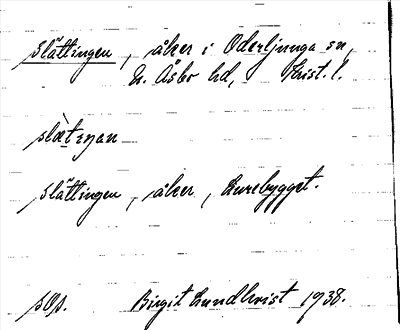 Slättingen, åker i Oderljunga sn,
N. Åsbo hd, Krist. l.
slæ̀tɩŋan
Slättingen, åker, Lurebygget.
sOp. Birgit Lundkvist 1938.